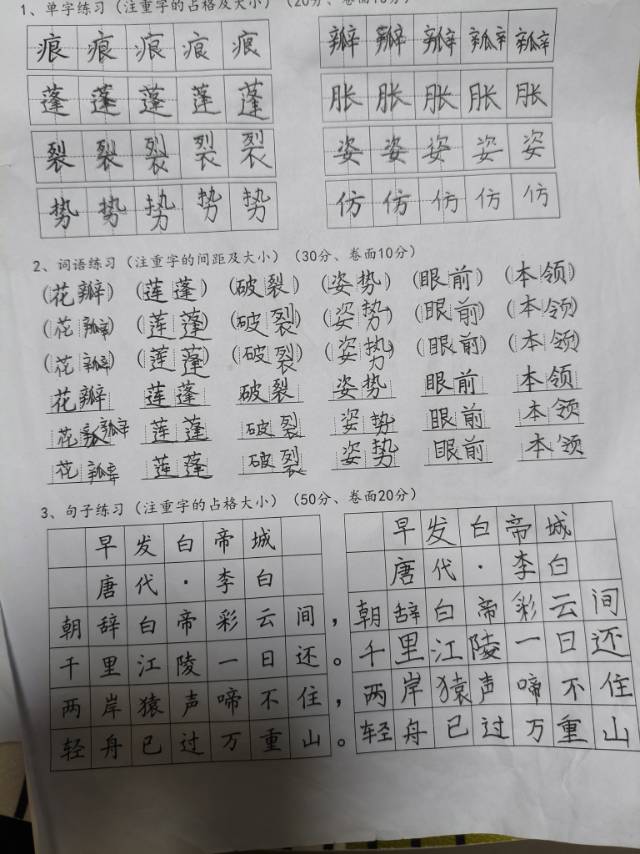 1、单字练习（注重字的占格及大小）（20分、卷面10分）
痕 痕 痕 痕 痕 瓣 瓣 瓣 瓣 瓣
蓬 蓬 蓬 蓬 蓬 胀 胀 胀 胀 胀
裂 裂 裂 裂 裂 姿 姿 姿 姿 姿
势 势 势 势 势 仿 仿 仿 仿 仿
2、词语练习（注重字的间距及大小）（30分、卷面10分）
（花瓣）（莲蓬）（破裂）（姿势）（眼前）（本领）
（花瓣）（莲蓬）（破裂）（姿势）（眼前）（本领）
（花瓣）（莲蓬）（破裂）（姿势）（眼前）（本领）
花瓣 莲蓬 破裂 姿势 眼前 本领
花瓣 莲蓬 破裂 姿势 眼前 本领
花瓣 莲蓬 破裂 姿势 眼前 本领
3、句子练习（注重字的占格大小）（50分、卷面20分）
早发白帝城 早发白帝城
唐代·李白 唐代·李白
朝辞白帝彩云间，朝辞白帝彩云间
千里江陵一日还。千里江陵一日还
两岸猿声啼不住，两岸猿声啼不住
轻舟已过万重山。轻舟已过万重山